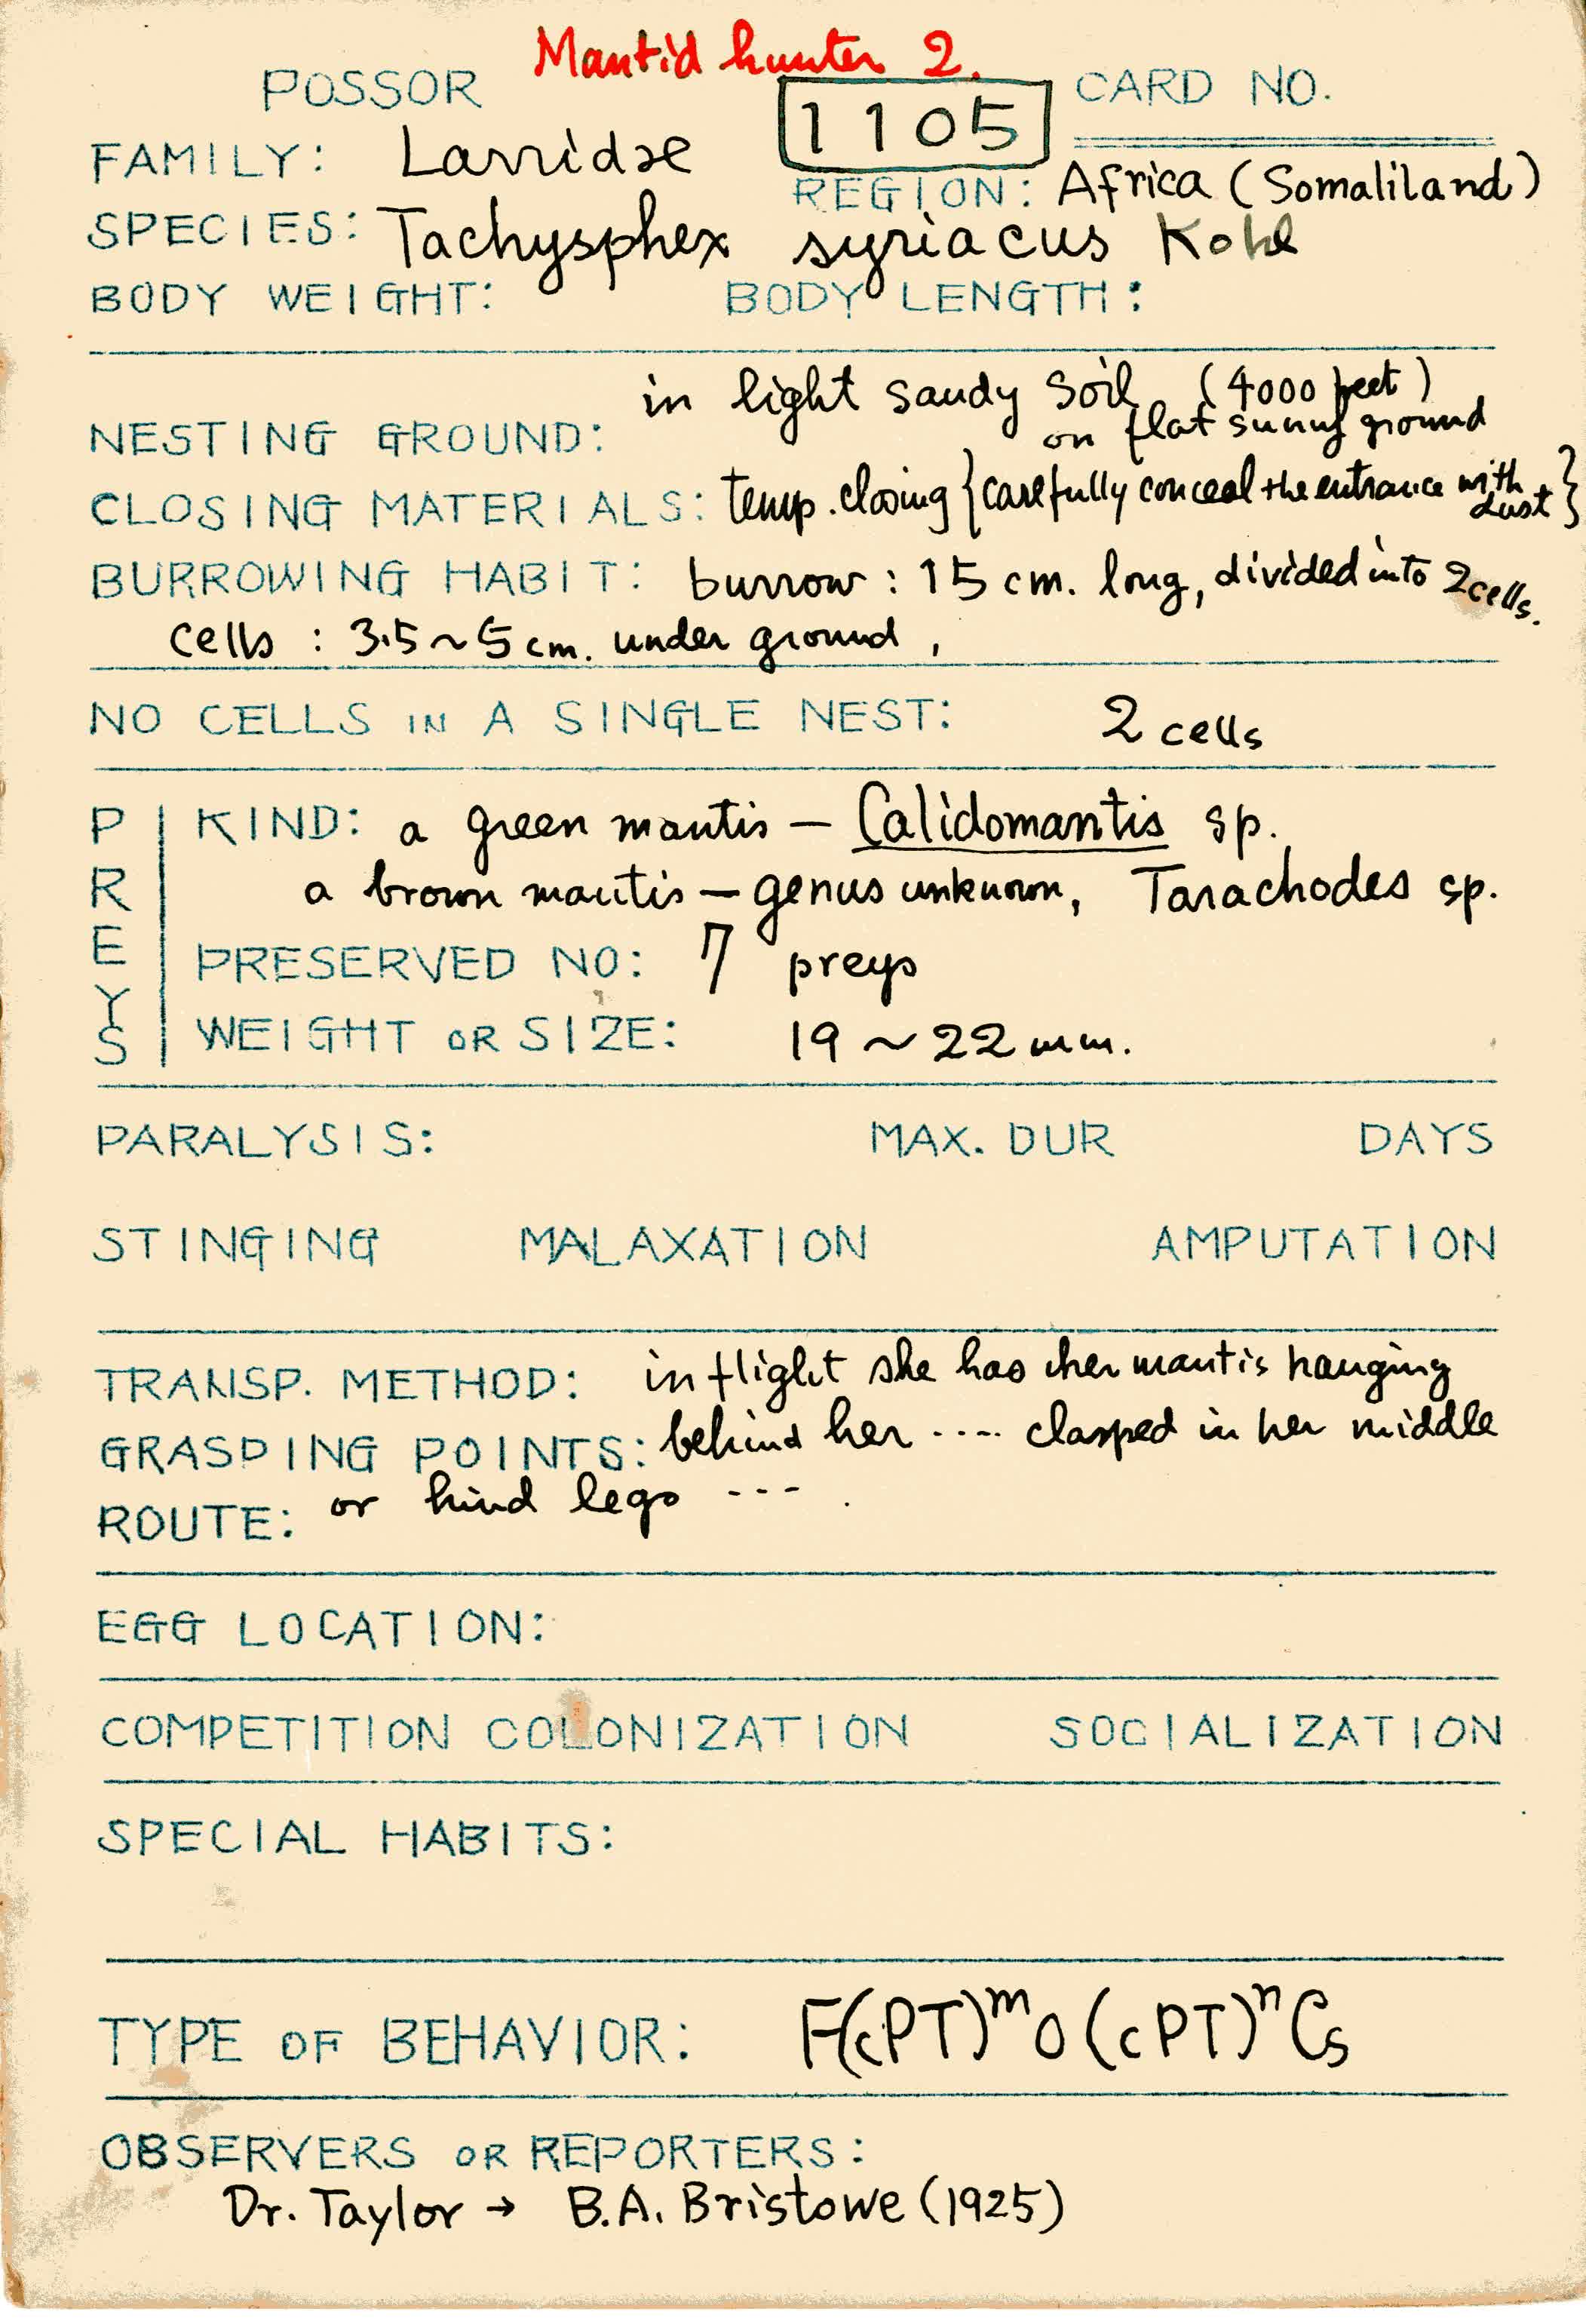 Mantid hunter 2.
POSSOR
1105
CARD NO.
FAMILY: Larridae
REGION: Africa (Somaliland)
SPECIES: Tachysphex syriacus Kohl
BODY WEIGHT: BODY LENGTH:
in light sandy soil (4000 feet)
NESTING GROUND: on flat sunny ground
CLOSING MATERIALS: temp. closing {carefully conceal the entrance with dust}
BURROWING HABIT: burrow: 15 cm. long, divided into 2 cells.
cells : 3.5~5 cm. under ground,
NO CELLS IN A SINGLE NEST: 2 cells
PREYS
KIND: a green mantis — Calidomantis sp.
a brown mantis — genus unknown, Tarachodes sp.
PRESERVED NO: 7 preys
WEIGHT OR SIZE: 19 ~ 22 mm.
PARALYSIS: MAX. DUR DAYS
STINGING MALAXATION AMPUTATION
TRANSP. METHOD: in flight she has her mantis hanging
GRASPING POINTS: behind her ..... clasped in her middle
ROUTE: or hind legs --- .
EGG LOCATION:
COMPETITION COLONIZATION SOCIALIZATION
SPECIAL HABITS:
TYPE OF BEHAVIOR: F(cPT)ᵐO(cPT)ⁿCs
OBSERVERS OR REPORTERS:
Dr. Taylor → B.A. Bristowe (1925)